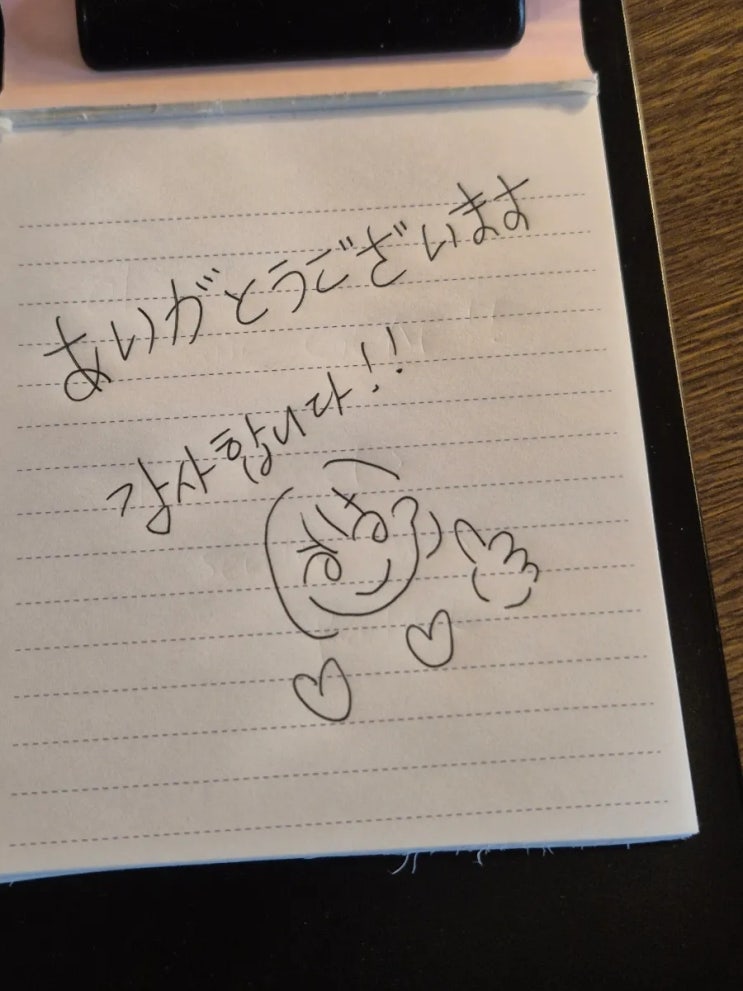 ありがとうございます
감사합니다!!